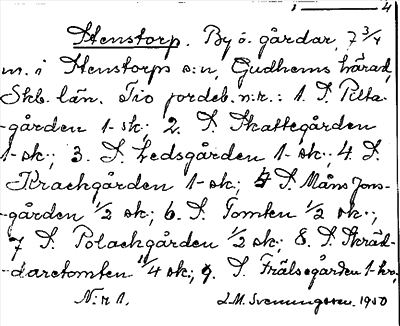 1 — 4
Stenstorp. By o. gårdar, 7 3/4
m. i Stenstorps s:n, Gudhems härad,
Skb. län. Tio jordeb. n:r.: 1. S. Pilta-
-gården 1 sk.; 2. S. Skattegården
1 sk.; 3. S. Ledsgården 1 sk.; 4. S.
Krackgården 1 sk.; 5 S. Måns Jons-
-gården 1/2 sk.; 6. S. Tomten 1/2 sk.;
7 S. Polackgården 1/2 sk.; 8. S. Skräd-
-daretomten 1/4 sk.; 9. S. Frälsegården 1
N:r 1. L.M. Svenungsson. 1950